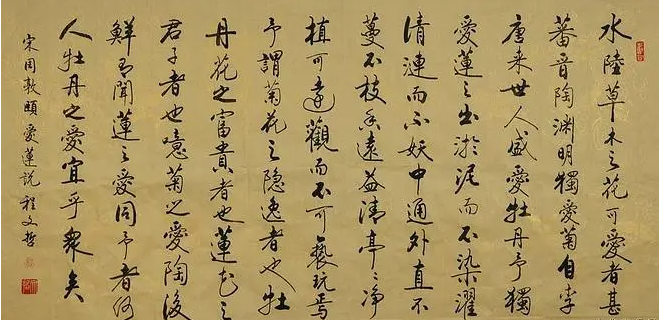 水陸草木之花可愛者甚
蕃晉陶渊明獨愛菊自李
唐来世人盛愛牡丹予獨
愛蓮之出淤泥而不染濯
清漣而不妖中通外直不
蔓不枝香遠益清亭〻净
植可遠觀而不可褻玩焉
予謂菊花之隐逸者也牡
丹花之富貴者也蓮花之
君子者也噫菊之愛陶後
鮮有聞蓮之愛同予者何
人牡丹之愛宜乎衆矣
宋周敦頤愛蓮説 程文哲